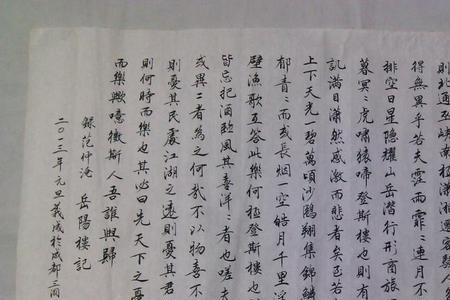 則北通巫峡南極瀟湘遷客騷人
得無異乎若夫霪雨霏〻連月不
排空日星隱耀山岳潛行形商旅
暮冥〻虎嘯猿啼登斯樓也則有
訊滿目瀟然感激而悲者矣至若
上下天光一碧萬頃沙鷗翔集錦鱗
郁青〻而或長烟一空皓月千里浮
壁漁歌互答此樂何極登斯樓也
皆忘把酒臨風其喜洋〻者也嗟夫
或異二者為之何哉不以物喜不
則憂其民處江湖之遠則憂其君
則何時而樂也其必曰先天下之憂
而樂歟噫微斯人吾誰與歸
錄范仲淹 岳陽樓記
二〇一三年元旦義成於成都三洞